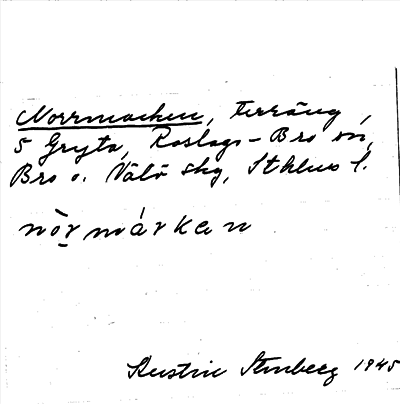 Norrmarken, terräng,
S Gryta, Roslags-Bro sn,
Bro o. Vätö skg, Sthlms l.
nò̱r márkan
Stenberg 1945